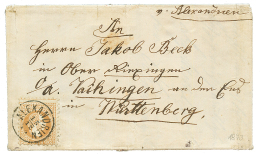 v. Alexandrien
An
Herrn Jakob Beck
in Ober Riexingen
Oa. Vaihingen an der Enz
in Württemberg.
ALEXANDRIEN